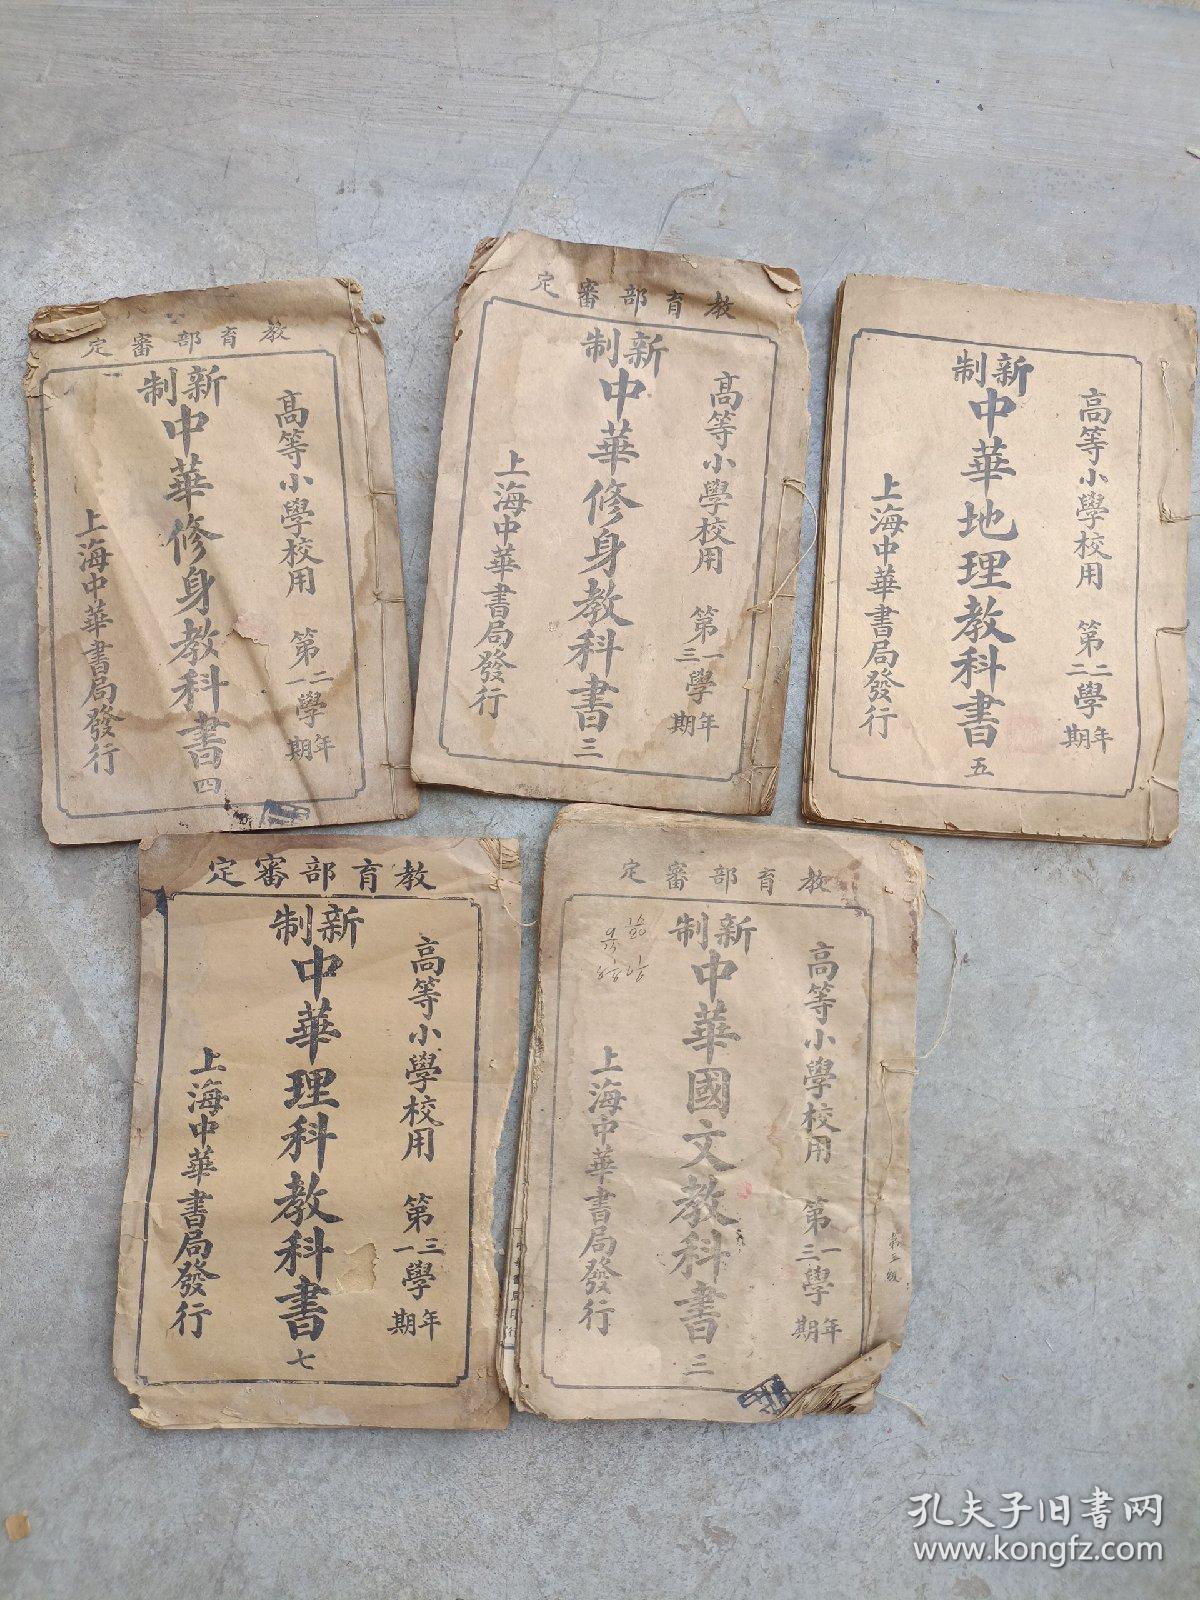 教育部審定
高等小學校用 第二學年
第一學期
新制
中華修身教科書 四
上海中華書局發行
教育部審定
高等小學校用 第一學年
第三學期
新制
中華修身教科書 三
上海中華書局發行
高等小學校用 第二學年
第二學期
新制
中華地理教科書 五
上海中華書局發行
教育部審定
高等小學校用 第三學年
第一學期
新制
中華理科教科書 七
上海中華書局發行
教育部審定
高等小學校用 第一學年
第三學期
新制
中華國文教科書 三
上海中華書局發行
孔夫子旧书网
www.kongfz.com